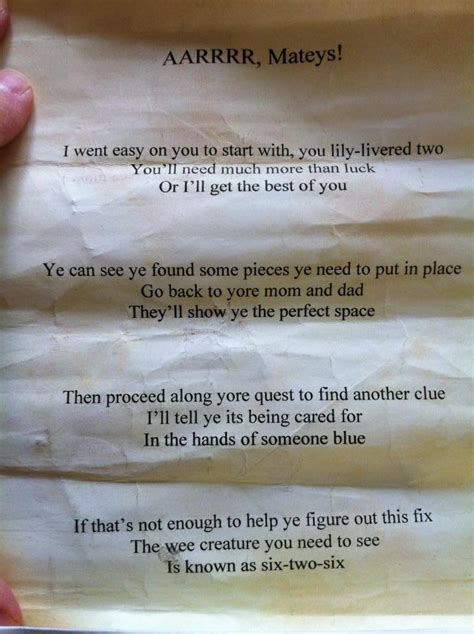 AARRRR, Mateys!
I went easy on you to start with, you lily-livered two
You'll need much more than luck
Or I'll get the best of you
Ye can see ye found some pieces ye need to put in place
Go back to yore mom and dad
They'll show ye the perfect space
Then proceed along yore quest to find another clue
I'll tell ye its being cared for
In the hands of someone blue
If that's not enough to help ye figure out this fix
The wee creature you need to see
Is known as six-two-six